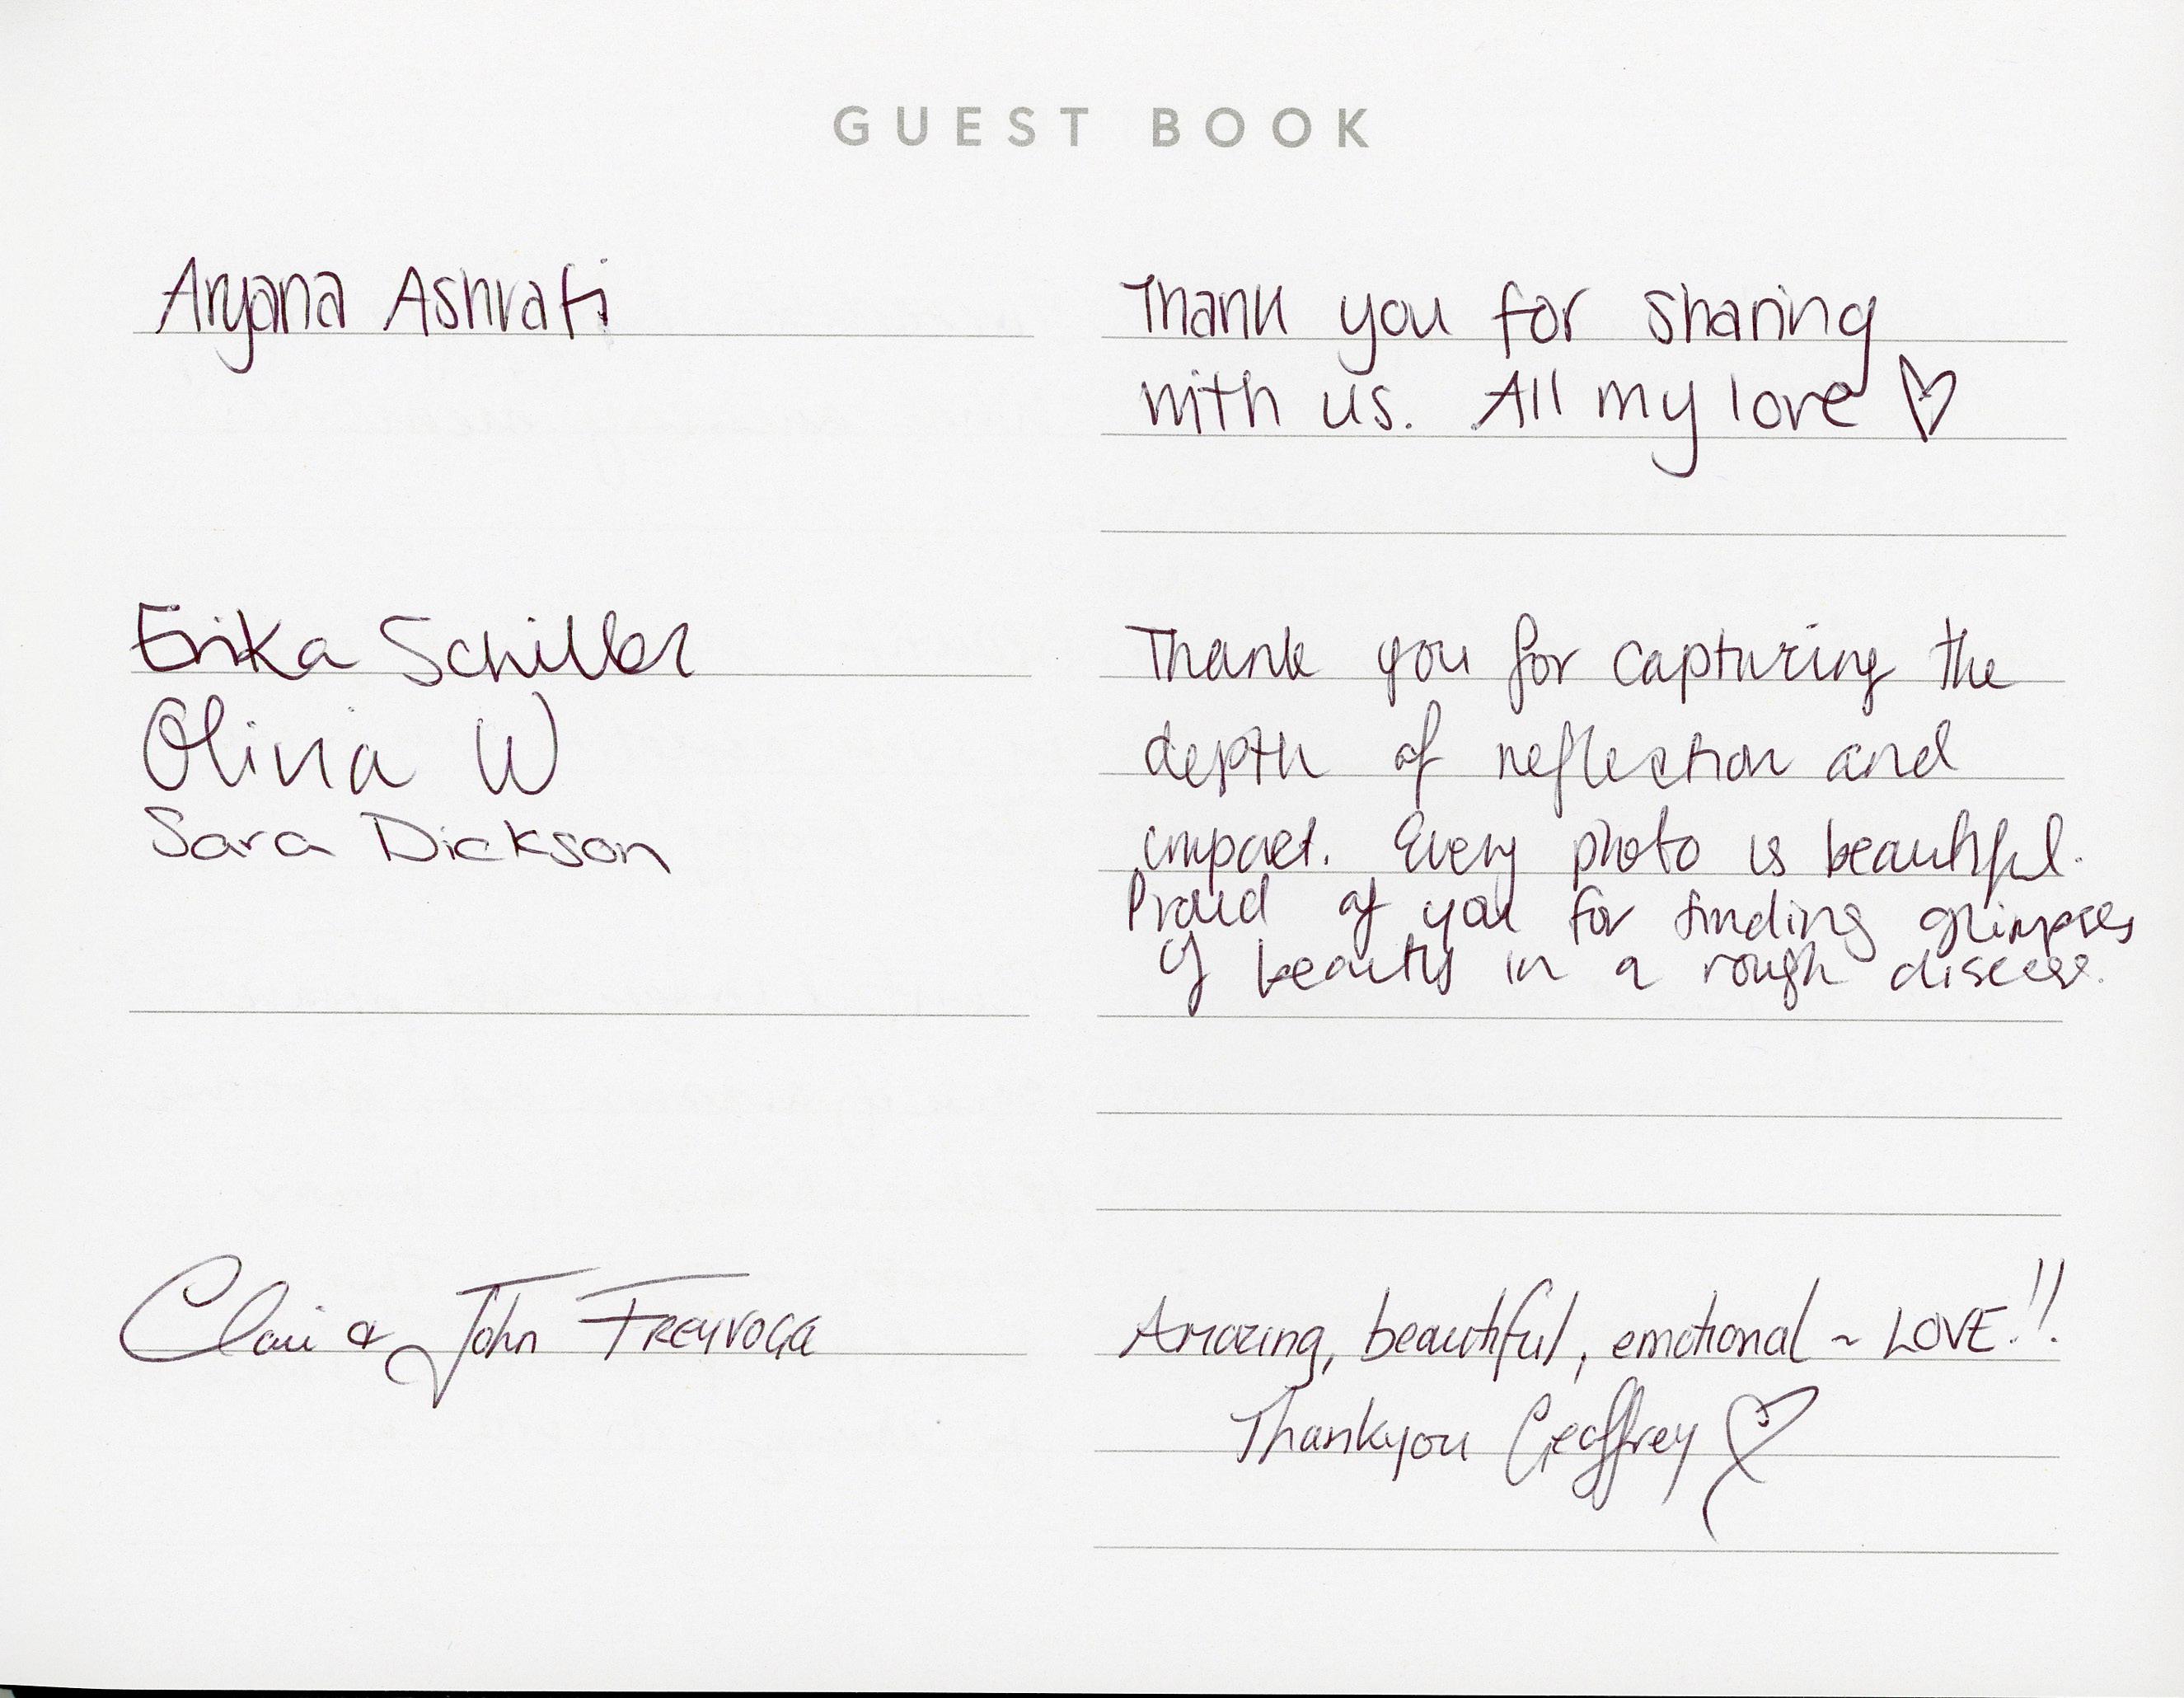 GUEST BOOK
Aryana Ashrafi
Thank you for sharing
with us. All my love ♡
Erika Schiller
Olivia W
Sara Dickson
Thank you for capturing the
depth of reflection and
impact. Every photo is beautiful.
Proud of you for finding glimpses
of beauty in a rough disease.
& John
Amazing, beautiful, emotional ~ LOVE!!
Thankyou Geoffrey ♡